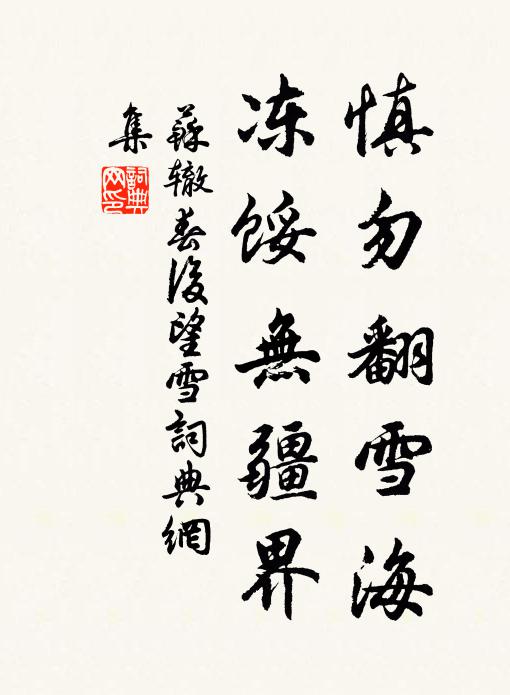 慎勿翻雪海
冻馁無疆界
蘇辙春後望雪詞典網
集
詞典网印